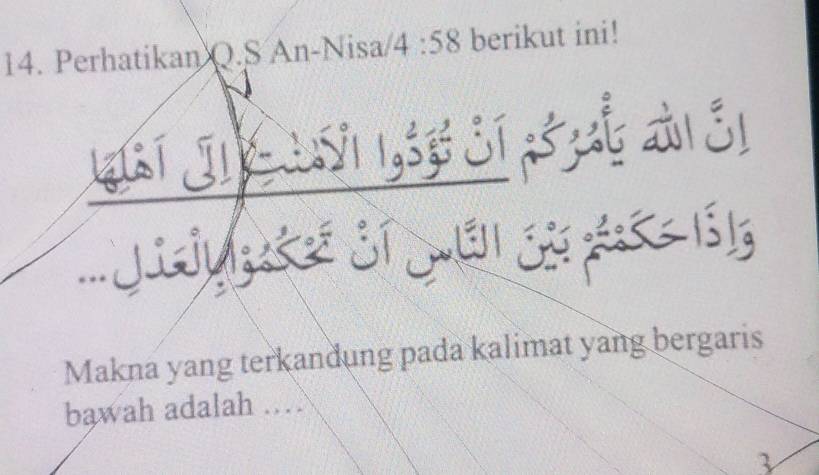 14. Perhatikan Q.S An-Nisa/4 :58 berikut ini!
إِنَّ اللّٰهَ يَأْمُرُكُمْ أَنْ تُؤَدُّوا الْأَمٰنٰتِ إِلٰٓى أَهْلِهَا
وَإِذَا حَكَمْتُمْ بَيْنَ النَّاسِ أَنْ تَحْكُمُوْا بِالْعَدْلِ ...
Makna yang terkandung pada kalimat yang bergaris
bawah adalah ....
3